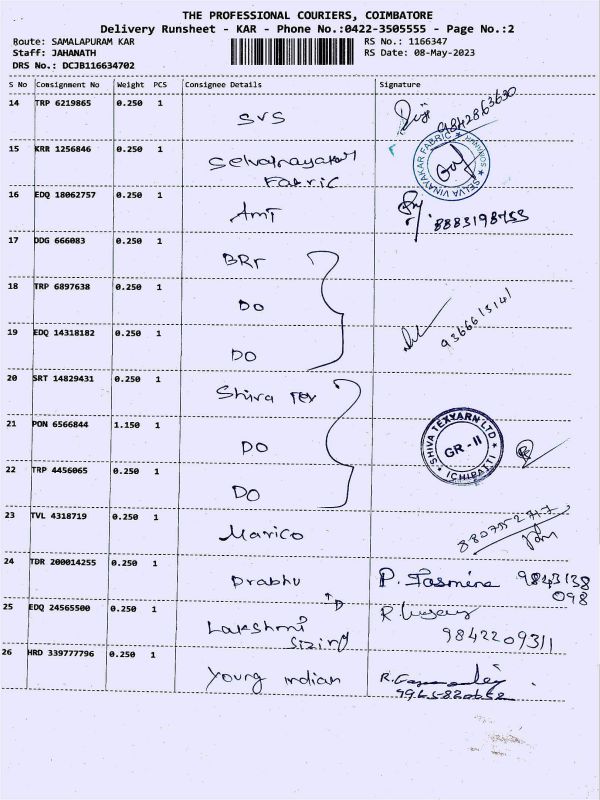 THE PROFESSIONAL COURIERS, COIMBATORE
Delivery Runsheet - KAR - Phone No.:0422-3505555 - Page No.:2
Route: SAMALAPURAM KAR
RS No.: 1166347
Staff: JAHANATH
RS Date: 08-May-2023
DRS No.: DCJB116634702
S No Consignment No Weight PCS Consignee Details Signature
14 TRP 6219865 0.250 1 SVS 9842863630
15 KRR 1256846 0.250 1 Selvanayakar Fabric
SELVA VINAYAKAR FABRIC
16 EDQ 18062757 0.250 1 Amt 8883198753
17 DDG 666083 0.250 1 BRT
18 TRP 6897638 0.250 1 DO 9366615141
19 EDQ 14318182 0.250 1 DO
20 SRT 14829431 0.250 1 Shiva Tex
21 PON 6566844 1.150 1 DO
SHIVA TEXYARN LTD
GR-II
ICHIPATTI
22 TRP 4456065 0.250 1 DO
23 TVL 4318719 0.250 1 Marico 8807952717
24 TDR 200014255 0.250 1 Prabhu P. Jasmine 9843138
098
25 EDQ 24565500 0.250 1 Lakshmi Sizing
9842209311
26 HRD 339777796 0.250 1 Young indian